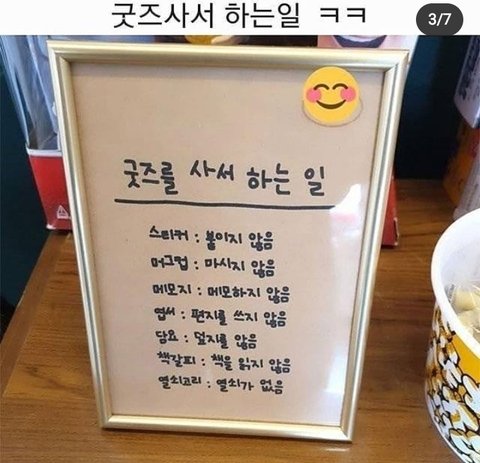 굿즈사서 하는일 ㅋㅋ
3/7
굿즈를 사서 하는 일
스티커 : 붙이지 않음
머그컵 : 마시지 않음
메모지 : 메모하지 않음
엽서 : 편지를 쓰지 않음
담요 : 덮지를 않음
책갈피 : 책을 읽지 않음
열쇠고리 : 열쇠가 없음